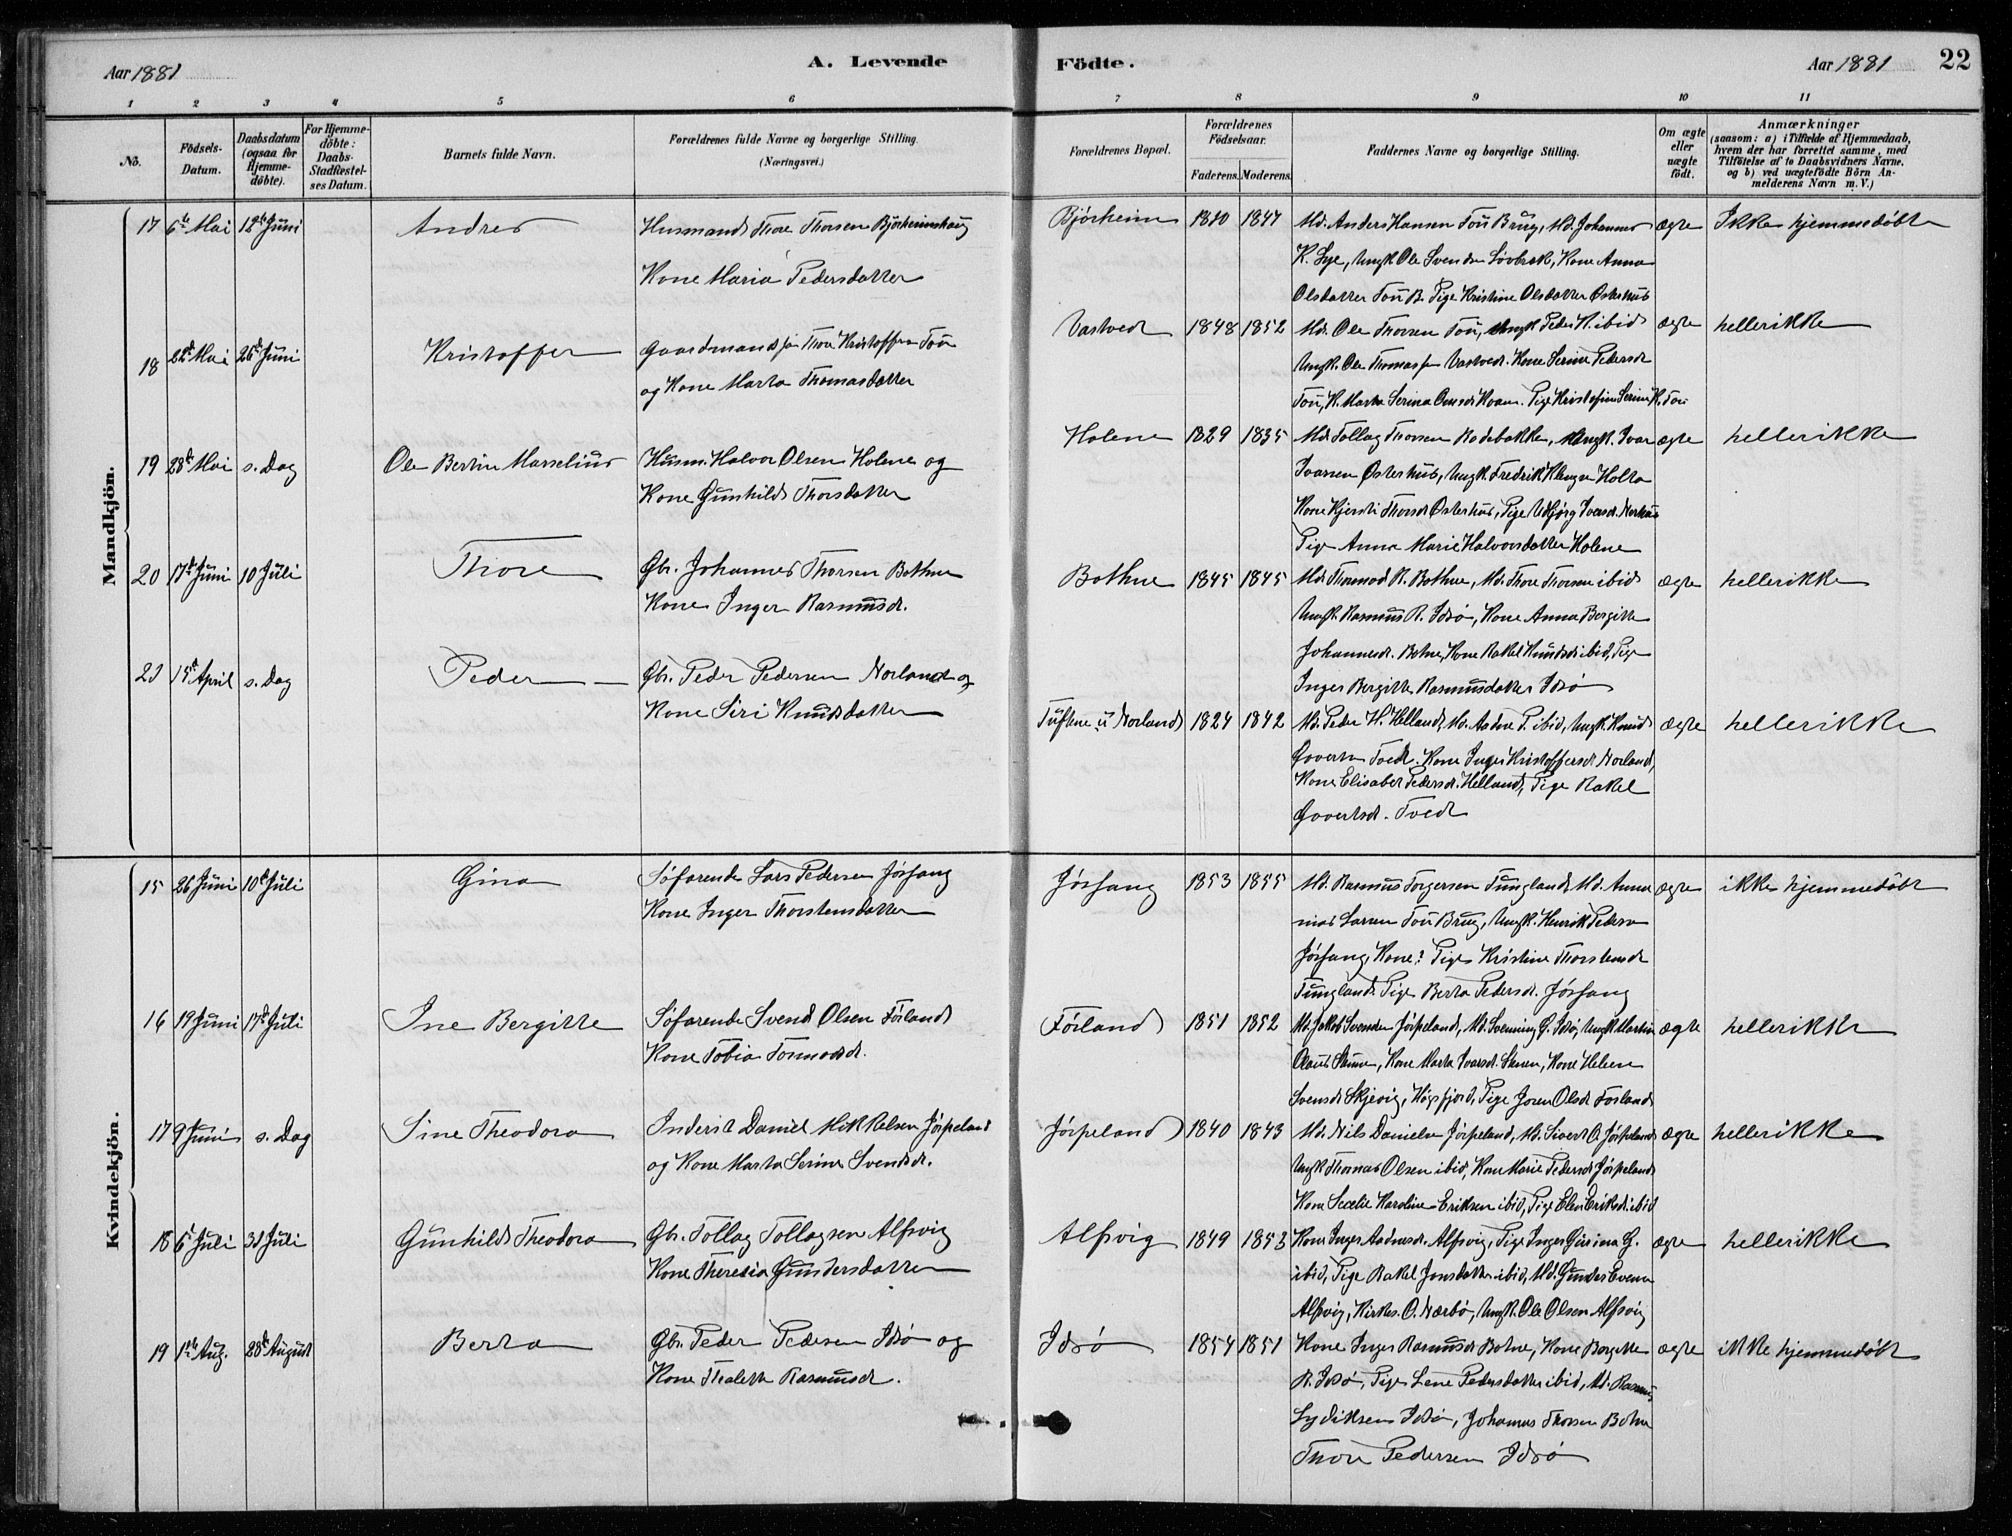 Aar 1881
A. Levende
Födte.
Aar 1881
22
1 2 3 4 5 6 7 8 9 10 11
Nö.
Födsels-
Datum.
Daabsdatum
(ogsaa for
Hjemme-
döbte).
For Hjemme-
döbte:
Daabs-
Stadfæstel-
ses Datum.
Barnets fulde Navn.
Forældrenes fulde Navne og borgerlige Stilling.
(Næringsvei.)
Forældrenes Bopæl.
Forældrenes
Födselsaar.
Faderens. Moderens.
Faddernes Navne og borgerlige Stilling.
Om ægte
eller
uægte
födt.
Anmærkninger
(saasom: a) i Tilfælde af Hjemmedaab,
hvem der har forrettet samme, med
Tilföielse af to Daabsvidners Navne,
og b) ved uægtefödte Börn An-
melderens Navn m. V.)
Mandkjön.
17 6te Mai 12te Juni Andres
Husmand Thore Thorsen Bjørheimshaug
Kone Maria Pedersdatter
Bjørheim 1810 1847
Md. Anders Hansen Tou Brug, Md. Johannes
K. Lye, Ungk. Ole Svendsen Løvbrek, Kone Anna
Olsdatter Tou B. Pige Kristine Olsdatter Østerhus
ægte Ikke hjemmedøbt
18 22d Mai 26d Juni Kristoffer
Gaardmand Thore Kristoffersen Tou
og Kone Marta Thomasdatter
Vastvedt 1848 1852
Md. Ole Thorsen Tou, Ungk. Peder K. ibid
Ungk. Ole Thomassen Vastvedt. Kone Serine Pedersdr
Tou, K. Marta Serina Pige Kristofine Serine K. Tou
ægte hellerikke
19 28d Mai s. Dag Ole Bertin Marselius
Husm. Halvor Olsen Holene og
Kone Gunhild Thorsdatter
Holene 1829 1835
Md. Tollag Thorsen Rødebakke, Ungk. Ivar
Ivarsen Østerhus, Ungk. Fredrik Holta
Kone Kjersti Thorsdr Østerhus, Pige Udbjørg Ivarsdr.
Pige Anna Marie Halvorsdatter Holene
ægte hellerikke
20 17d Juni 10 Juli Thore
Gbr. Johannes Thorsen Bothne
Kone Inger Rasmusdr.
Bothne 1845 1845
Md. Thormod R. Bothne, Md. Thore Thorsen ibid
Ungk. Rasmus R. Idsø, Kone Anna Bergitte
Johannesdr. Bohne, Kone Rakel Knudsdr ibid, Pige
Inger Bergitte Rasmusdatter Idsø
ægte hellerikke
21 15d April s. Dag Peder
Gbr. Peder Pedersen Norland og
Kone Siri Knudsdatter
Tuftene u Norland 1824 1842
Md. Peder H. Helland, Md. Aadne P. ibid, Ungk. Knud
Govertsen Tvedt. Kone Inger Kristoffersdr Norland,
Kone Elisabet Pedersdr. Helland, Pige Rakel
Govertsdr. Tvedt
ægte hellerikke
Kvindekjön.
15 26 Juni 10d Juli Gina
Søfarende Lars Pedersen Jøsfang
Kone Inger Thorstensdatter
Jøsfang 1853 1855
Md. Rasmus Torgersen Tungland, Md. Amun-
Larsen Tou Brug, Ungk. Henrik Pedersen
Jøsfang, Kone: Pige Kristine Thorstensdr
Tungland Pige Berta Pedersdr. Jøsfang
ægte ikke hjemmedøbt
16 19 Juni 17d Juli Ine Bergitte
Søfarende Svend Olsen Førland
Kone Tobia Tormodsdr.
Førland 1851 1852
Md. Jakob Svendsen Jørpeland, Md. Svenning G. Idsø, Ungk. Martin
Olaus, Kone Marta Ivarsdr., Kone Helene
Svendsdr Skjevig, Høgsfjord, Pige Joren Olsdr Førland
ægte hellerikke
17 9 Juni s. Dag Sine Theodora
Inderst Daniel Mikkelsen Jørpeland
og Kone Marta Serine Svendsdr.
Jørpeland 1840 1843
Md. Nils Danielsen Jørpeland, Md. Sivert O. Jørpeland
Ungk Thomas Olsen ibid, Kone Marie Pedersdr Jørpeland
Kone Karoline Eriksen ibid, Pige Elen Eriksdr ibid
ægte hellerikke
18 6d Juli 31 Juli Gunhild Theodora
Gbr. Tollag Tollagsen Alfsvig
Kone Theresia Gundersdatter
Alfsvig 1849 1853
Kone Inger Aadnesdr. Alfsvig, Pige Inger Gurina G.
ibid, Pige Rakel Jonsdatter ibid, Md. Gunder Evensen
Alfsvig, Kirkes. O. Nærbø, Ungk. Ole Olsen Alfsvig
ægte hellerikke
19 1ste Aug. 28de August Berta
Gbr. Peder Pedersen Idsø og
Kone Thalette Rasmusdr.
Idsø 1854 1851
Kone Inger Rasmusdr Bohne, Kone Bergitte
R. Idsø, Pige Lene Pedersdatter ibid, Md. Rasmus
Lydiksen Idsø, Johannes Thorsen Bohne
Thore Pedersen Idsø
ægte ikke hjemmedøbt